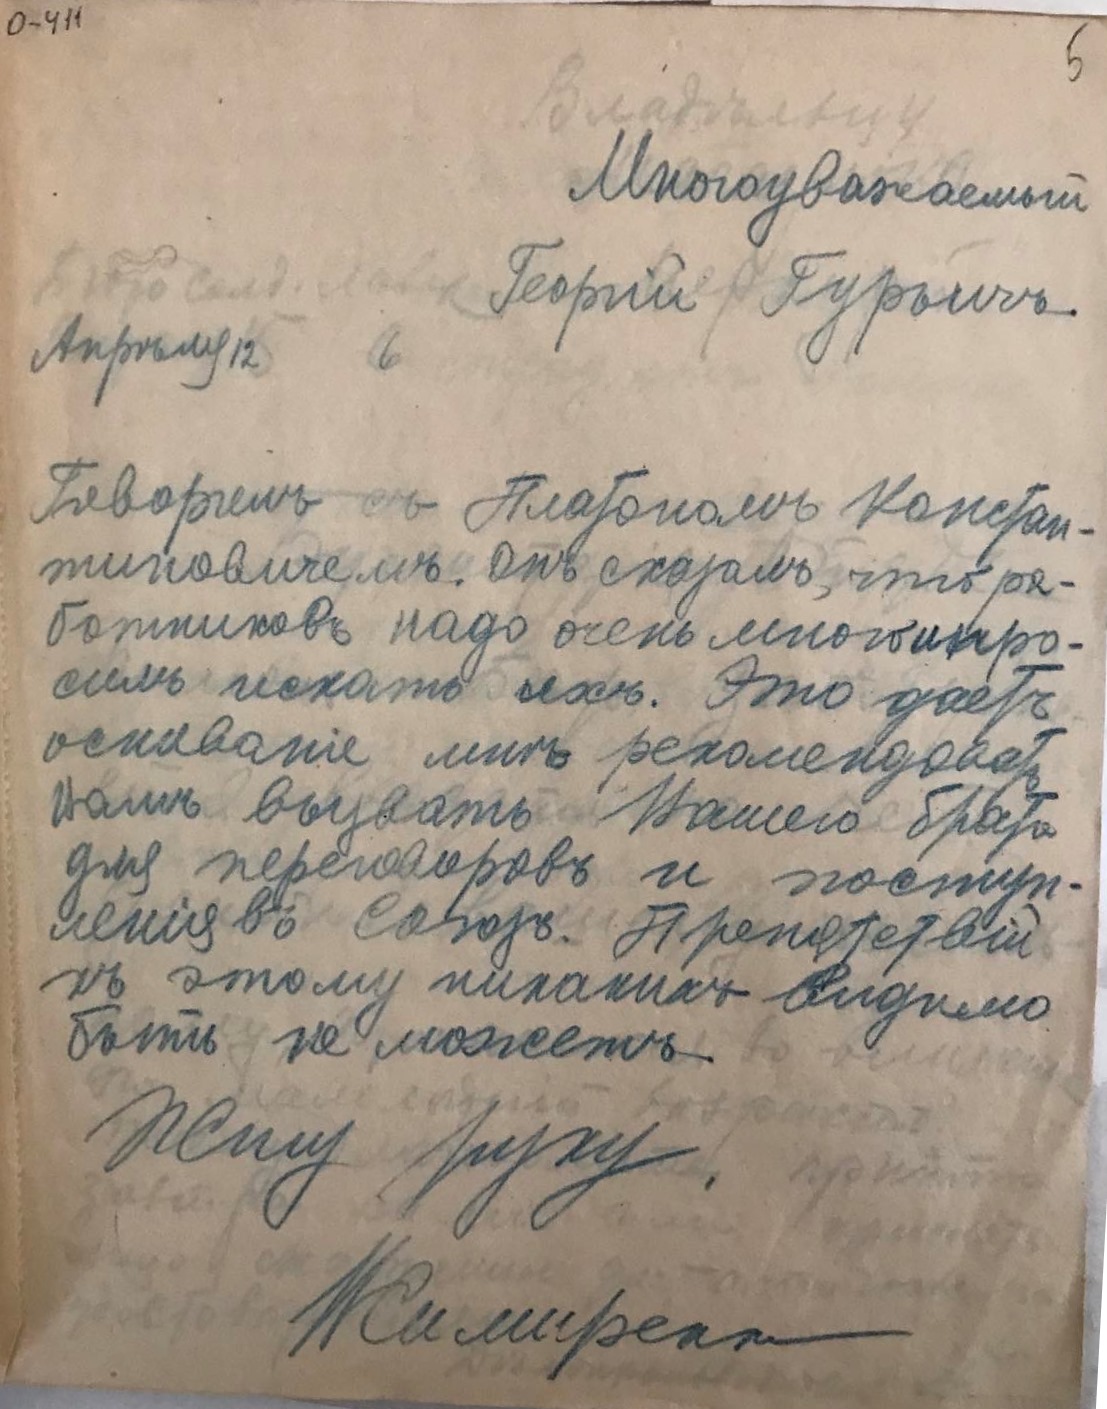 О-411
5
Многоуважаемый
Георгій Гурьичъ.
Апрѣля 12 6
Говорилъ съ Платономъ Констан-
тиновичемъ. Онъ сказалъ, что ра-
ботниковъ надо очень много и про-
силъ искать ихъ. Это даетъ
основаніе мнѣ рекомендовать
Вамъ вызвать Вашего брата
для переговоровъ и поступ-
ленія въ Союзъ. Препятствій
къ этому никакихъ видимо
быть не можетъ.
Жму руку.